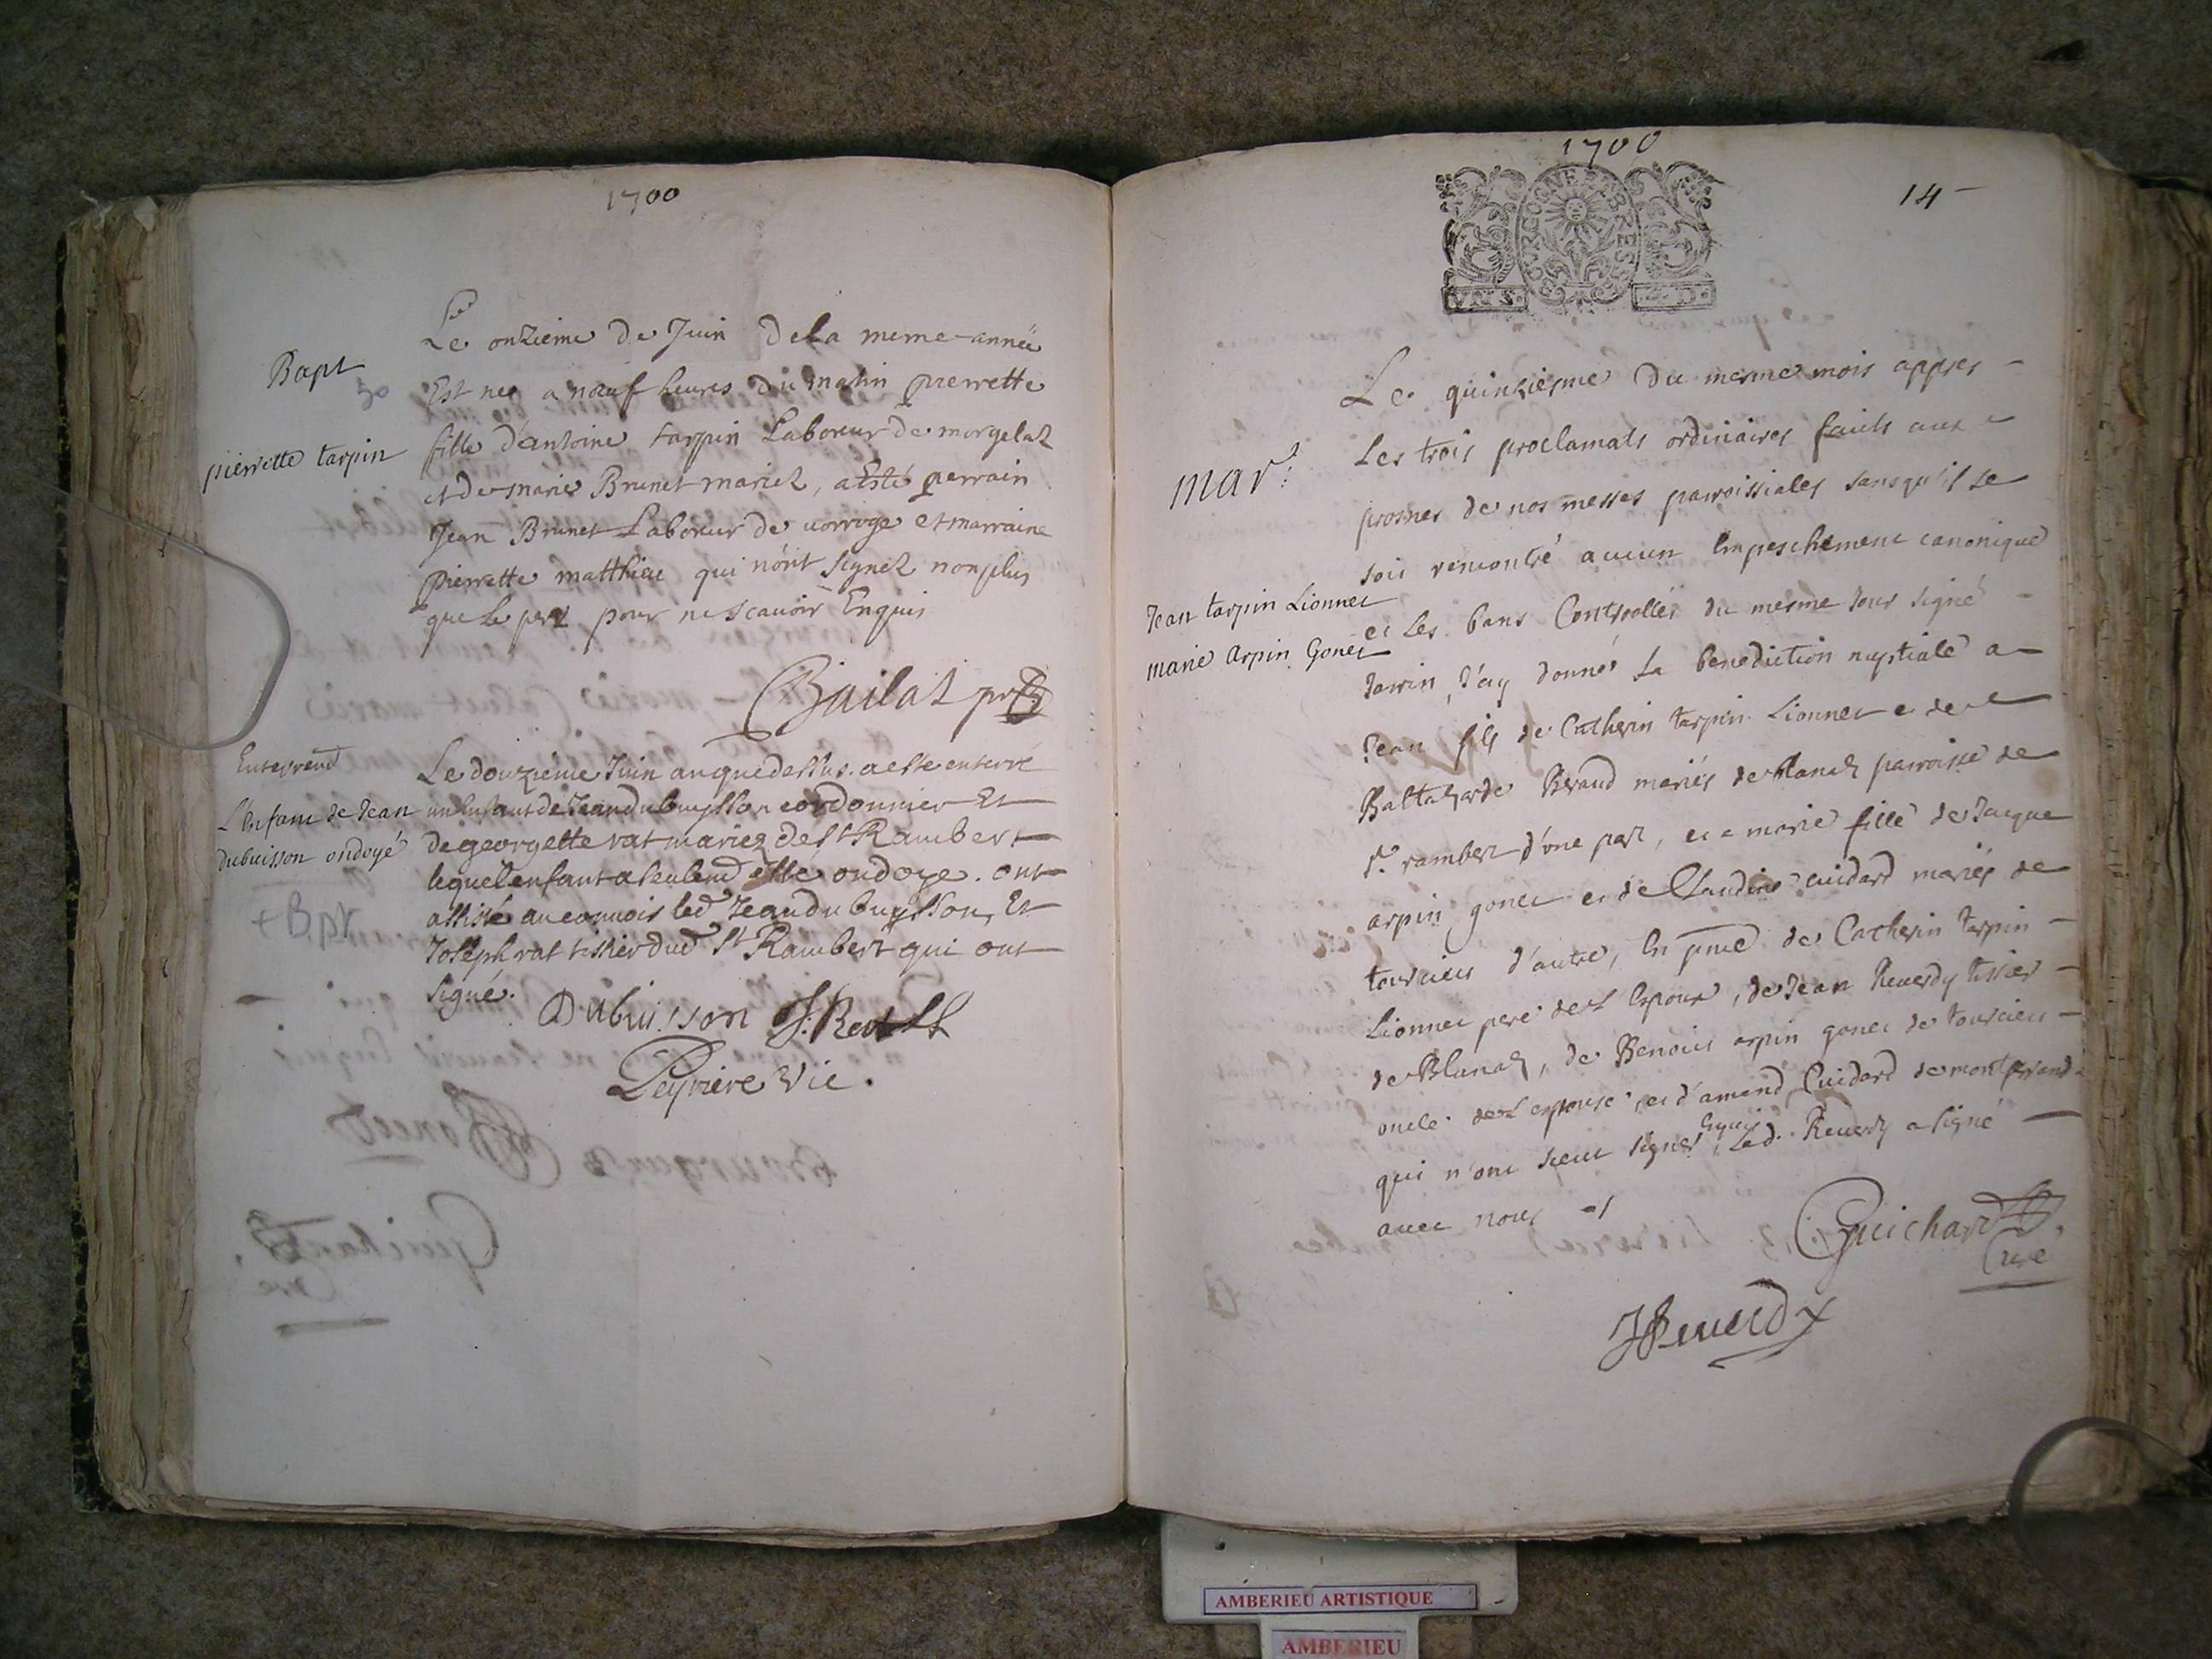 1700
Bapt
50
pierrette tarpin
Le onzieme de Juin de la meme année
Est neé a nœuf heures du matin pierrette
fille d'antoine tarpin Laboreur de morgelaz
et de marie Brunet mariez, a Esté perrain
Jean Brunet Laboreur de uorroge et marraine
pierrette matthieu qui n'ont signez nonplus
que le pere pour ne scavoir Enquis
Bailat
Enterremt
L'enfant de Jean
dubuisson ondoyé
+ Bpt
Le douzieme Juin an que dessus a este enterré
un enfant de Jean dubuysson cordonnier Et
de georgette rat mariez de St Rambert
lequel enfant a seulemt esté ondoye. ont
assisté au conuois led Jean dubuysson, Et
Joseph rat tissier dud St Rambert qui ont
signé.
Dubuisson J: Rat
Peyriere Vic.
1700
14
BOURGOGNE BRESSE
Mar:
Jean tarpin Lionnet
marie Arpin Gonet
Le quinziesme du mesme mois appres
Les trois proclamats ordinaires faits aux
prosnes de nos messes parroissiales sans qu'il se
soit rencontré aucun Empeschement canonique
et Les bans Controllés du mesme Jour signé
J'ay donnés La benediction nuptiale a
Jean fils de Catherin tarpin Lionnet e de
Baltazarde Beraud mariés de Blanaz parroisse de
St. rambert d'une part, et a marie fille de Jacque
arpin gonet et de Claudine cuidard mariés de
torcieu d'autre, En pnce de Catherin tarpin
Lionnet pere de L'Epoux, de Jean Reuerdy tissier
de Blanaz, de Benoict arpin gonet de torcieu
oncle de L'espouse, et d'amend Cuidard de montferrand
qui n'ont sceu signer Enquis, Led. Reuerdy a signé
auec nous
Guichard
Curé
JReuerdy
AMBERIEU ARTISTIQUE
AMBERIEU